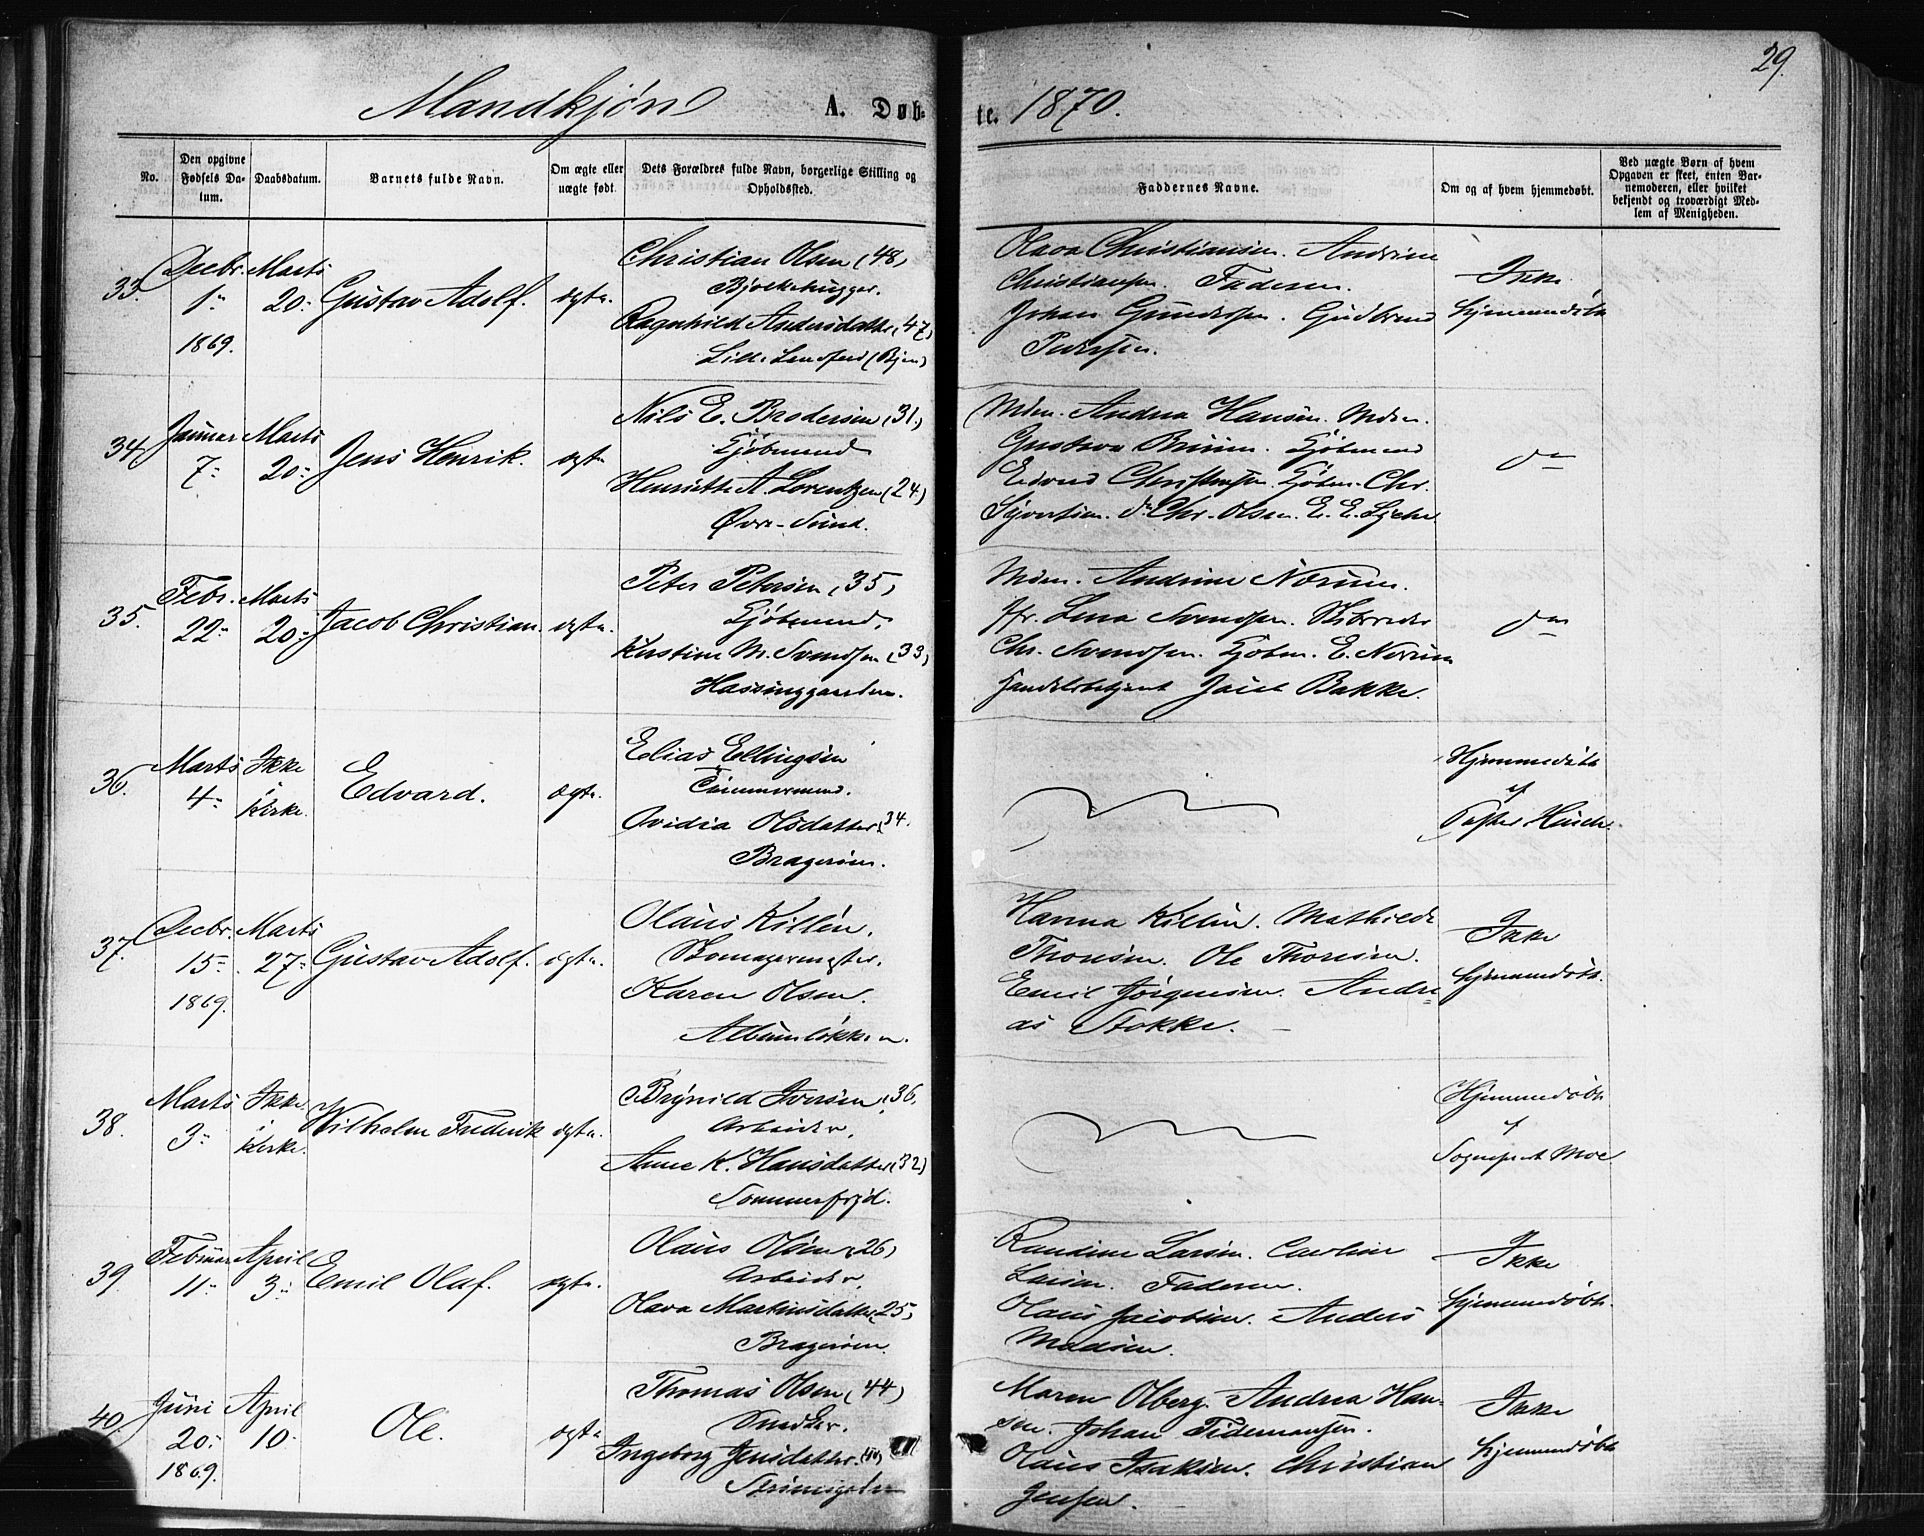 29.
Mandkjøn A. Døbte. 1870.
No.
Den opgivne Fødsels Datum.
Daabsdatum.
Barnets fulde Navn.
Om ægte eller uægte født.
Dets Forældres fulde Navn, borgerlige Stilling og Opholdssted.
Faddernes Navne.
Om og af hvem hjemmedøbt.
Ved uægte Børn af hvem
Opgaven er skeet, enten Bar-
nemoderen, eller hvilket
bekjendt og troværdigt Med-
lem af Menigheden.
33. Decbr. 1 1869. Marts 20. Gustav Adolf. ægte.
Christian Olsen (48)
Bjelkehugger.
Ragnhild Andersdatter (47)
Olava Christiansen. Andrine
Christiansen. Faderen.
Johan Gundersen. Gudbrand
Pedersen.
Ikke
hjemmedøbt
34. Januar 7 Marts 20 Jens Henrik. ægte
Nils E. Brodersen (31)
Kjøbmand
Henriette A. Lorentzen (24)
Øvre-Sund.
Mdm. Andrea Hansen. Mdm.
Gustava Bruun. Kjøbmand
Edvard Christensen. Kjøbm. Chr.
Syvertsen. do Chr. Olsen. E. E.
do
35. Febr. 22 Marts 20 Jacob Christian. ægte.
Peter Petersen (35)
Kjøbmand.
Kirstine M. Svendsen (33)
Hassinggaarden.
Mdm. Andrine Norum.
Jfr. Lena Svendsen. Skibsreder
Chr. Svendsen. Kjøbm. E. Norum
Handelsbetjent Bakke.
do
36. Marts 4 Ikke i Kirke. Edvard. ægte.
Elias Ellingsen
Tømmermand.
Ovidia Olsdatter (34.
Bragerøen.
Hjemmedøbt
af
Pastor
37. Decbr. 15 1869. Marts 27 Gustav Adolf. ægte.
Olaus Killén.
Skomagermester.
Karen Olsen.
Albumløkken.
Hanna Killén. Mathilde
Thoresen. Ole Thoresen.
Emil Jørgensen. Andre-
as Stokke.
Ikke
hjemmedøbt.
38. Marts 3 Ikke i Kirke. Wilhelm Frederik ægte.
Brynild Iversen (36.
Arbeider.
Anne K. Hansdatter (32)
Sommerfryd.
Hjemmedøbt
af
Sognepræst Moe
39. Februar 11 April 3 Emil Olaf. ægte.
Olaus Olsen (26)
Arbeider.
Olava Martinsdatter (25)
Bragerøen.
Randine Larsen. Caroline
Larsen. Faderen.
Olaus Jacobsen. Anders
Madsen.
Ikke
hjemmedøbt.
40. Juni 20. 1869. April 10. Ole. ægte
Thomas Olsen (44)
Snedker.
Ingeborg Jensdatter
Maren Olberg. Andrea Han-
sen. Johan Tidemansen.
Olaus Isaksen. Christian
Jensen.
Ikke
hjemmedøbt